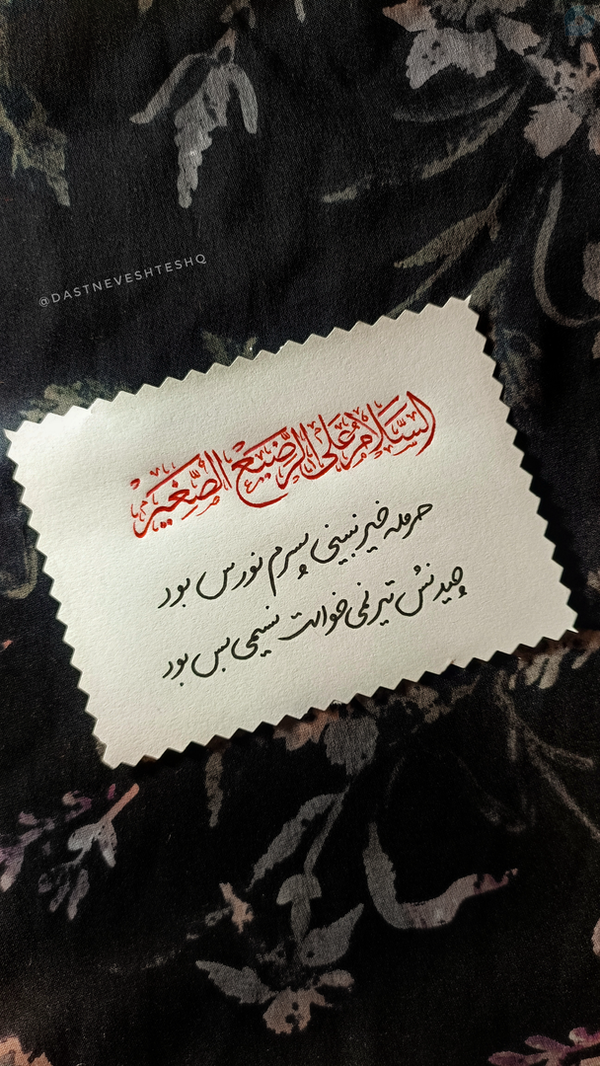 @DASTNEVESHTESHQ
السَّلامُ عَلَی الرَّضیعْ الصَّغیرْ
حرمله خیر نبینی پسرم نورس بود
چیدنش تیر نمی‌خواست نسیمی بس بود